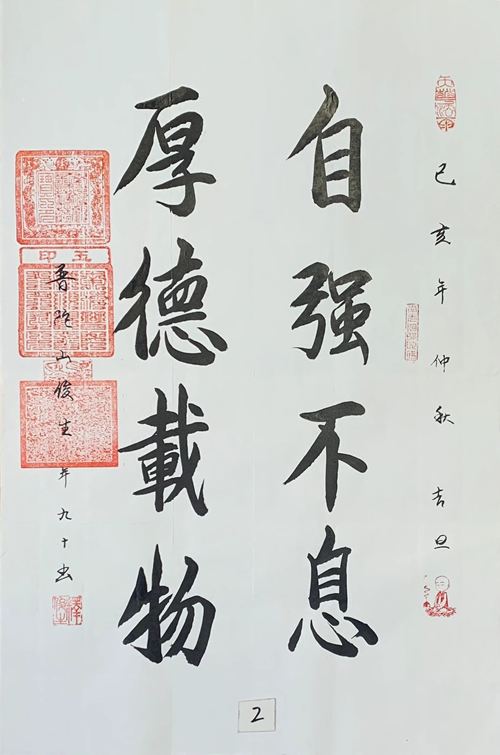 己亥年仲秋 吉旦
自强不息
厚德載物
普陀山俊生年九十书
五印
2